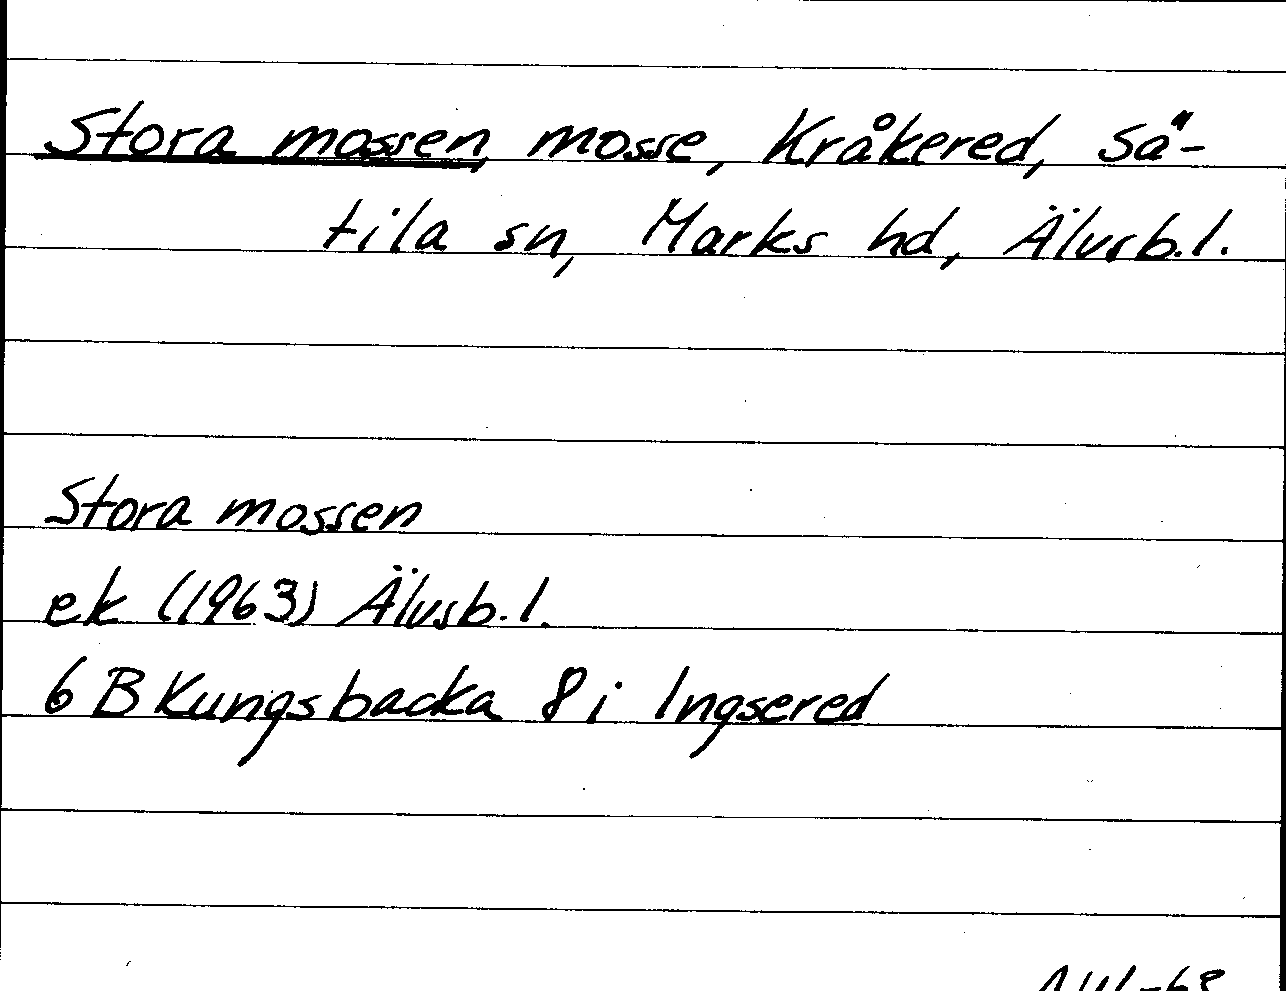 Stora mossen, mosse, Kråkered, Sä-
tila sn, Marks hd, Älvsb.l.
Stora mossen
ek (1963) Älvsb.l.
6 B Kungsbacka 8 i Ingsered